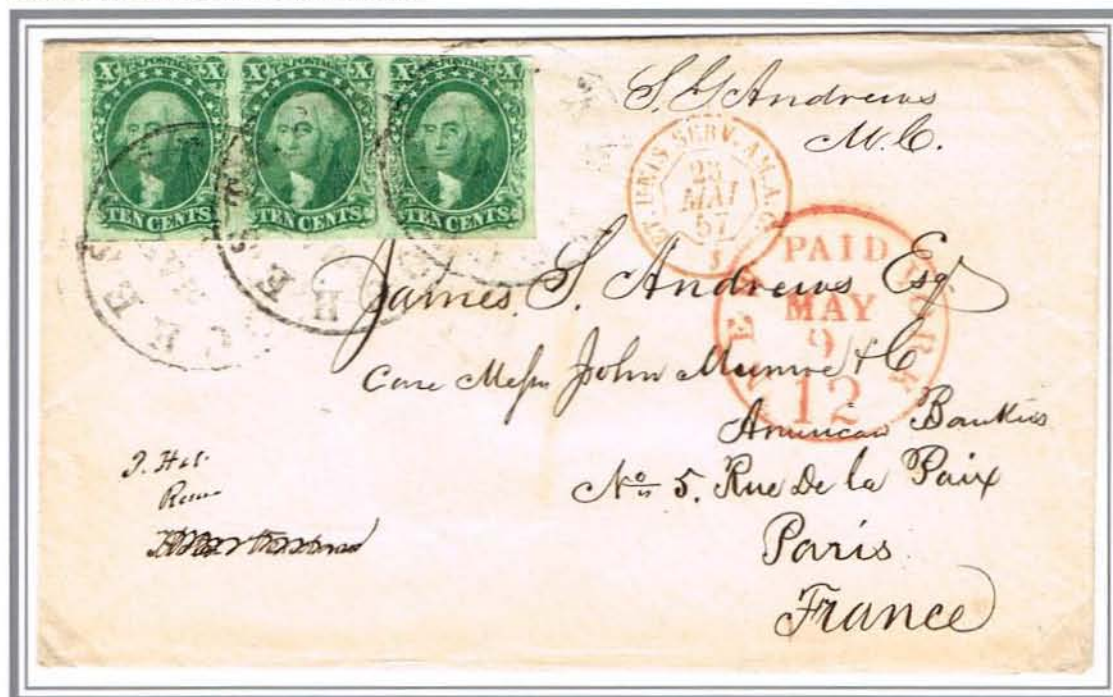 X U.S. POSTAGE X X U.S. POSTAGE X X U.S. POSTAGE X
TEN CENTS TEN CENTS TEN CENTS
S. G. Andrews
M.C.
ET. UNIS SERV. AM. A. C.
23
MAI
57
3
NEW YORK
PAID
MAY
9
12
James S. Andrews Esqr
Care Messrs John Munroe & C
American Bankers
No 5. Rue De la Paix
Paris
France